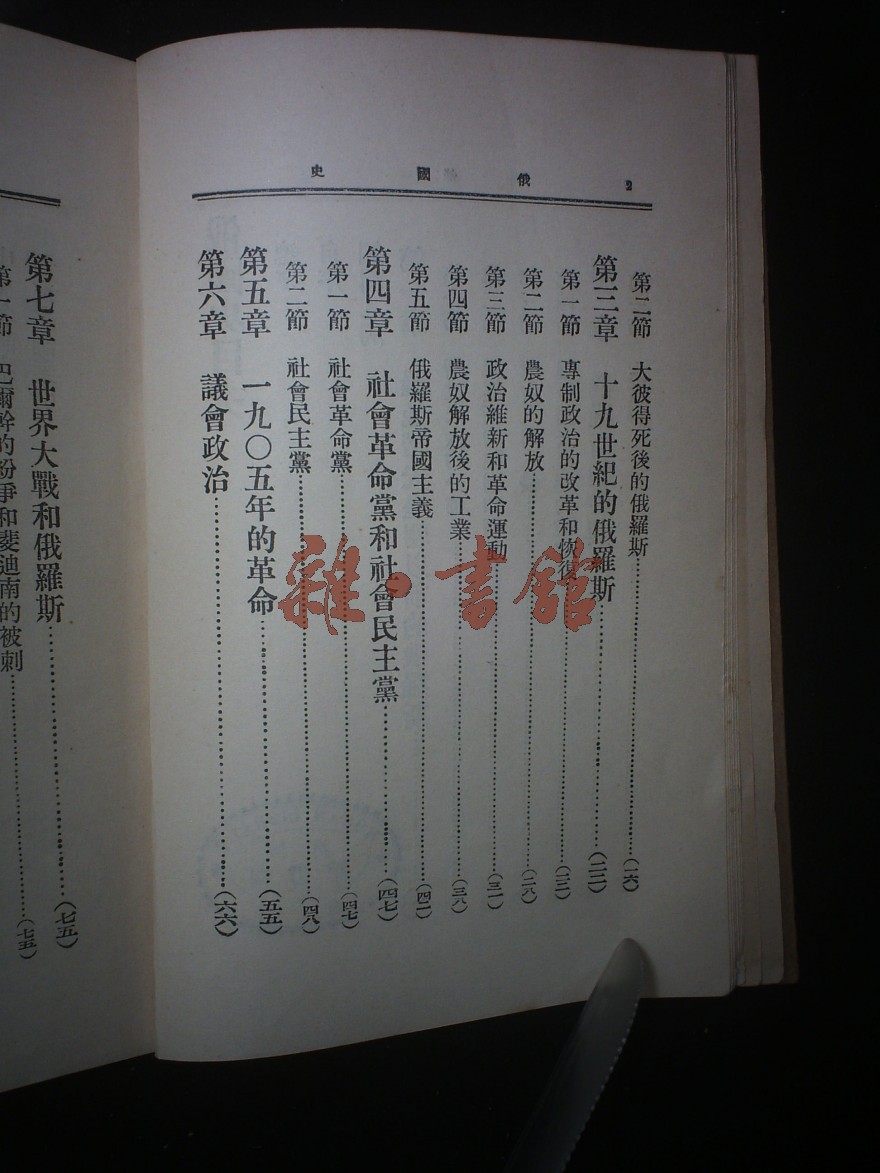 2 俄國史
第二節 大彼得死後的俄羅斯……(一六)
第三章 十九世紀的俄羅斯……(二二)
第一節 專制政治的改革和恢復……(二二)
第二節 農奴的解放……(二八)
第三節 政治維新和革命運動……(三一)
第四節 農奴解放後的工業……(三八)
第五節 俄羅斯帝國主義……(四二)
第四章 社會革命黨和社會民主黨……(四七)
第一節 社會革命黨……(四七)
第二節 社會民主黨……(四八)
第五章 一九〇五年的革命……(五五)
第六章 議會政治……(六六)
第七章 世界大戰和俄羅斯……(七五)
第一節 巴爾幹的紛爭和斐迪南的被刺……(七五)
雜·書館